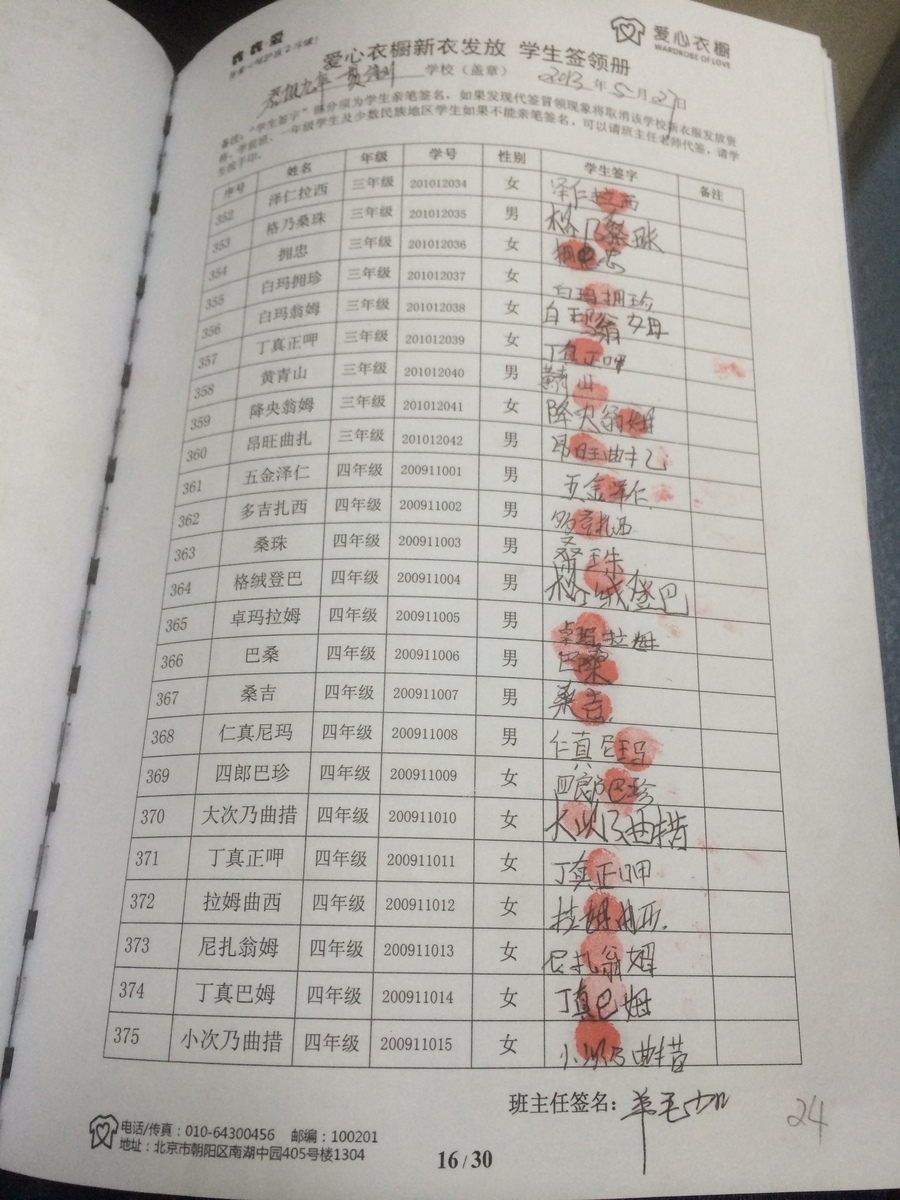 爱心衣橱
WARDROBE OF LOVE
爱心衣橱新衣发放 学生签领册
学校（盖章） 2013年5月27日
备注："学生签字"部分须为学生亲笔签名，如果发现代签冒领现象将取消该学校新衣服发放资
格，学前班、一年级学生及少数民族地区学生如果不能亲笔签名，可以请班主任老师代签，请学
生按手印。
序号 姓名 年级 学号 性别 学生签字 备注
352 泽仁拉西 三年级 201012034 女 泽仁拉西
353 格乃桑珠 三年级 201012035 男 格乃桑珠
354 拥忠 三年级 201012036 女 拥忠
355 白玛拥珍 三年级 201012037 女 白玛拥珍
356 白玛翁姆 三年级 201012038 女 白玛翁姆
357 丁真正呷 三年级 201012039 女 丁真正呷
358 黄青山 三年级 201012040 男 黄青山
359 降央翁姆 三年级 201012041 女 降央翁姆
360 昂旺曲扎 三年级 201012042 男 昂旺曲扎
361 五金泽仁 四年级 200911001 男 五金泽仁
362 多吉扎西 四年级 200911002 男 多吉扎西
363 桑珠 四年级 200911003 男 桑珠
364 格绒登巴 四年级 200911004 男 格绒登巴
365 卓玛拉姆 四年级 200911005 男 卓玛拉姆
366 巴桑 四年级 200911006 男 巴桑
367 桑吉 四年级 200911007 男 桑吉.
368 仁真尼玛 四年级 200911008 男 仁真尼玛
369 四郎巴珍 四年级 200911009 女 四郎巴珍
370 大次乃曲措 四年级 200911010 女 大次乃曲措
371 丁真正呷 四年级 200911011 女 丁真正呷
372 拉姆曲西 四年级 200911012 女 拉姆曲西.
373 尼扎翁姆 四年级 200911013 女 尼扎翁姆
374 丁真巴姆 四年级 200911014 女 丁真巴姆
375 小次乃曲措 四年级 200911015 女 小次乃曲措
班主任签名：
24
电话/传真：010-64300456 邮编：100201
地址：北京市朝阳区南湖中园405号楼1304
16 / 30